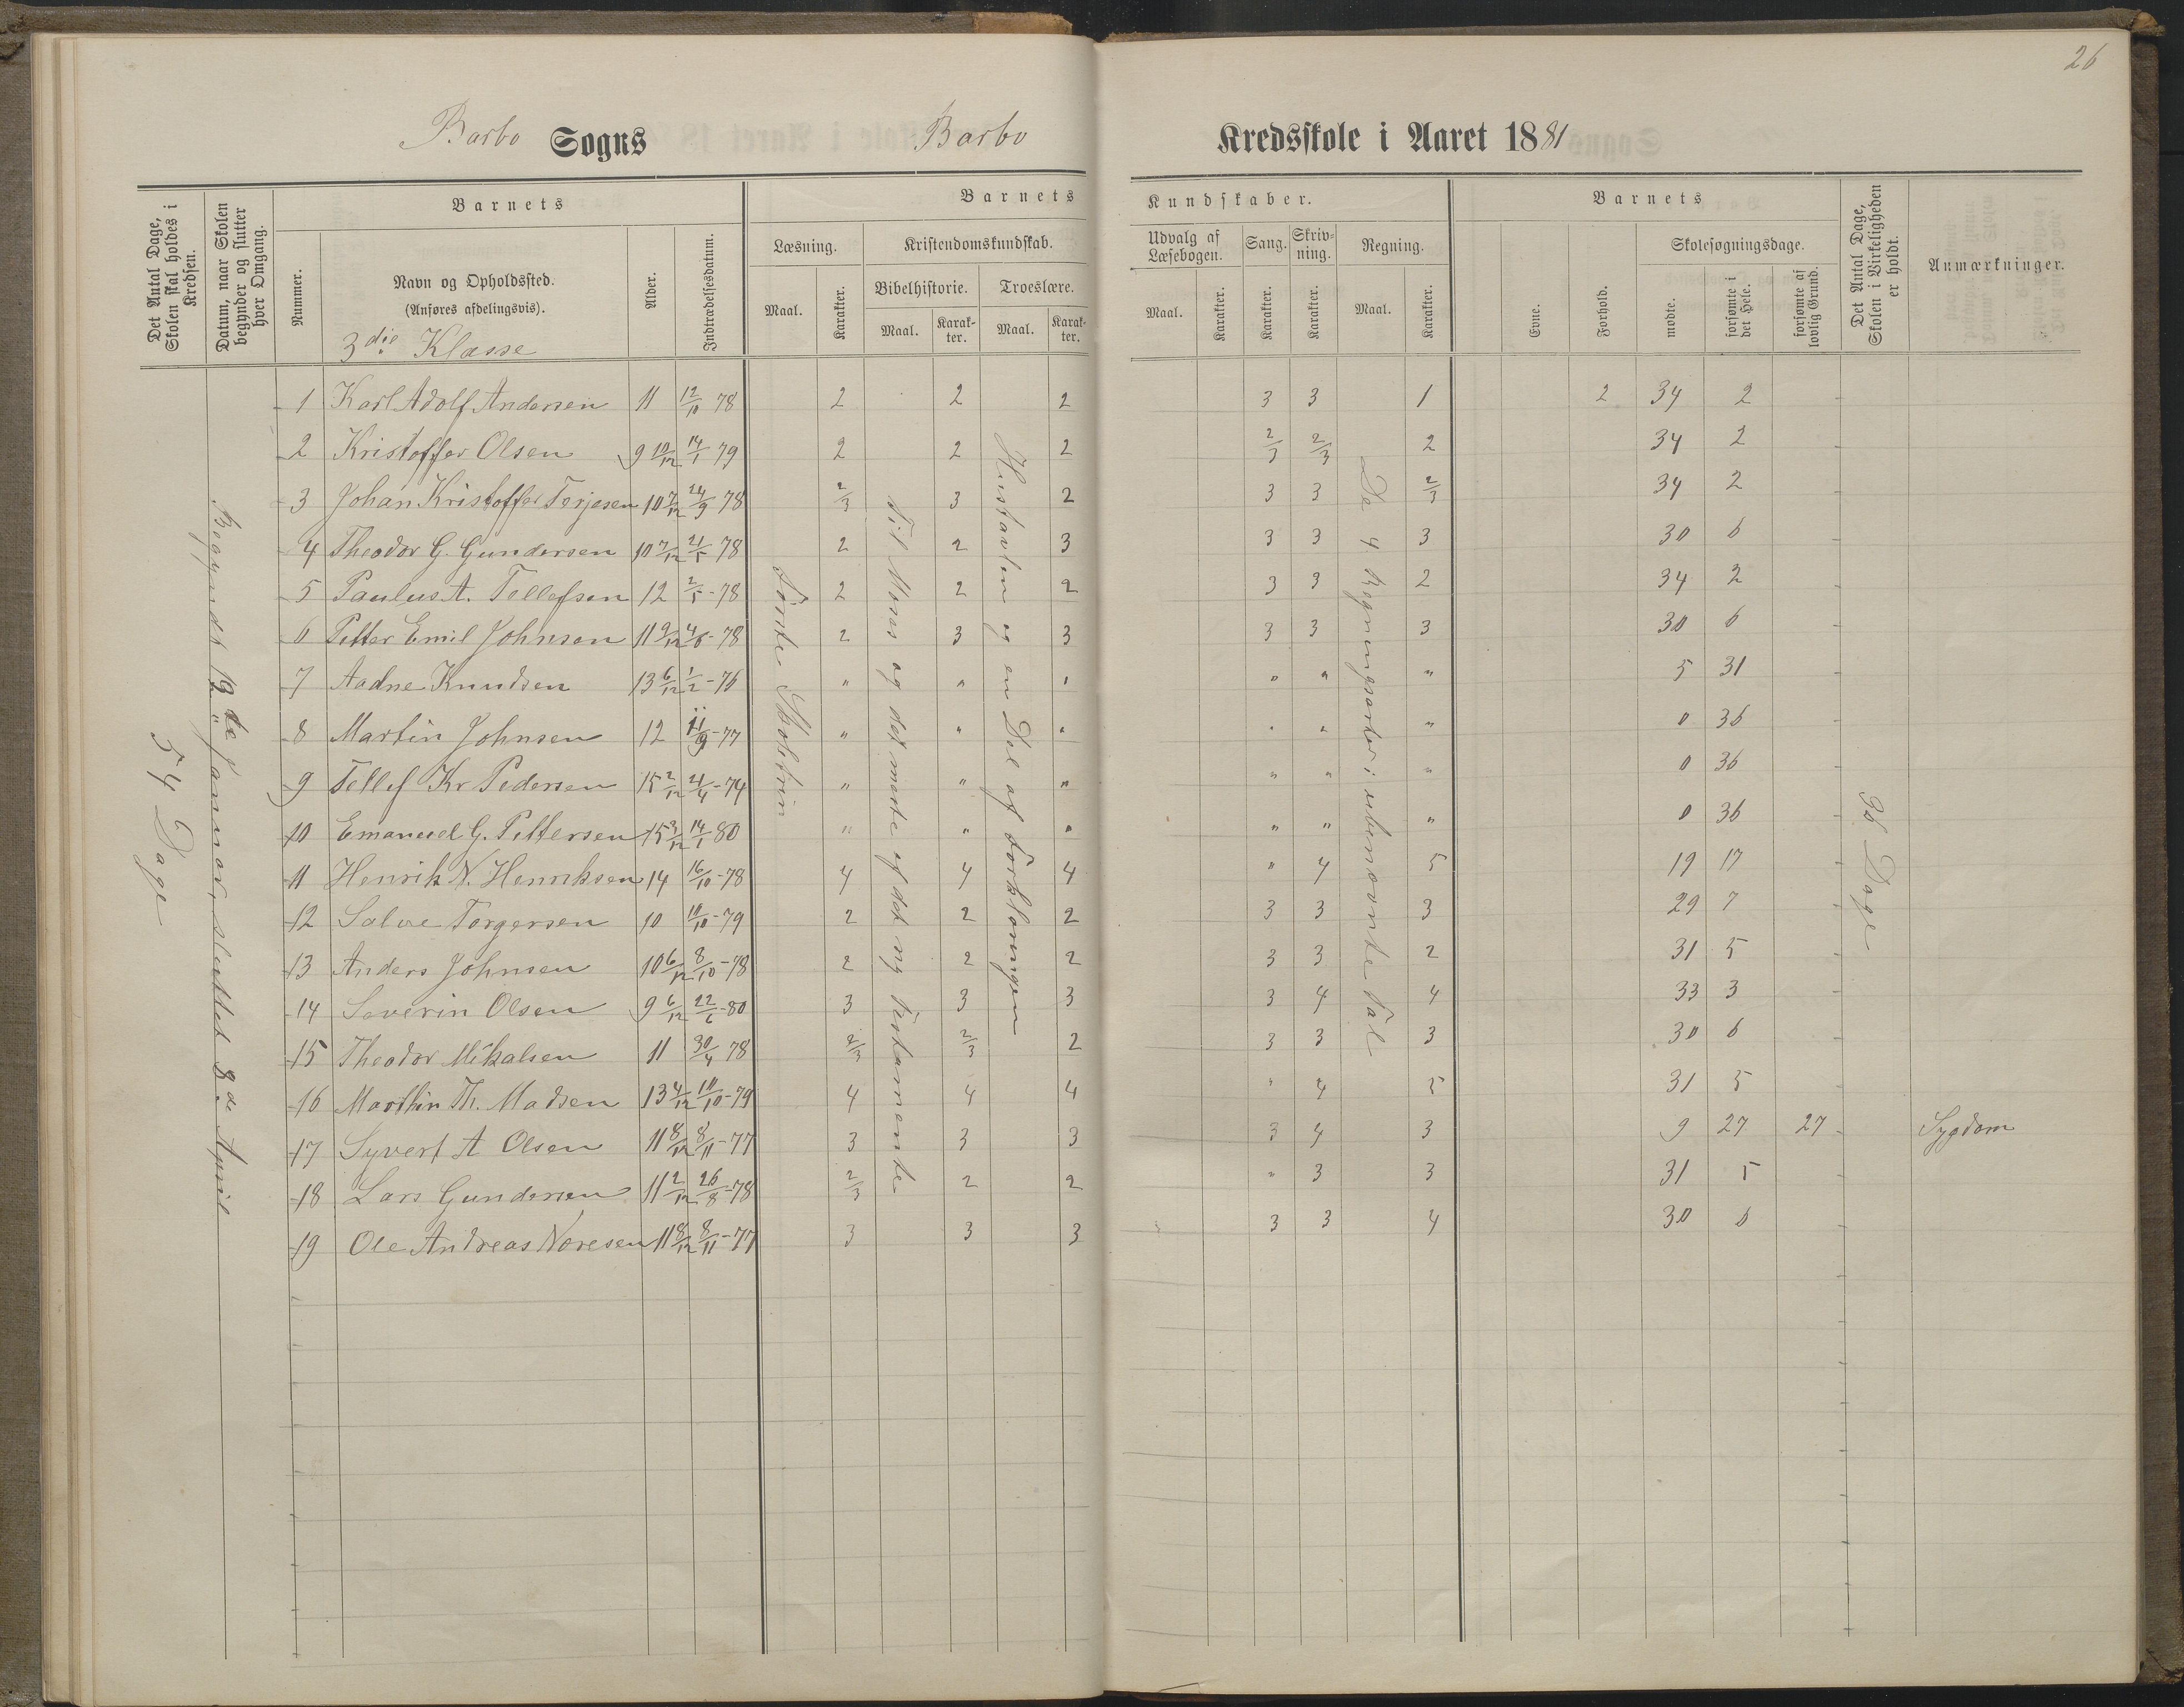 26
Barbo Sogns Barbo Kredsskole i Aaret 1881
Det Antal Dage, Skolen skal holdes i Kredsen.
Datum, naar Skolen begynder og slutter hver Omgang.
Barnets
Nummer.
Navn og Opholdssted.
(Anføres afdelingsvis).
3die Klasse
Alder.
Indtrædelsesdatum.
Barnets Kundskaber.
Læsning.
Maal.
Karakter.
Kristendomskundskab.
Bibelhistorie.
Maal.
Karakter.
Troeslære.
Maal.
Karakter.
Udvalg af Læsebogen.
Maal.
Karakter.
Sang.
Karakter.
Skrivning.
Karakter.
Regning.
Maal.
Karakter.
Barnets
Evne.
Forhold.
Skolesøgningsdage.
mødte.
forsømte i det Hele.
forsømte af lovlig Grund.
Det Antal Dage, Skolen i Virkeligheden er holdt.
Anmærkninger.
54 Dage
Begyndt 19de Januar, sluttet 8de April
Til Moses og det meste af det ny Testamente
Hustavlen og en Del af Forklaringen
De 4 Regningsarter i ubenævnte Tal
36 Dage
1 Karl Adolf Andersen 11 12/10 78 2 2 2 3 3 1 2 34 2
2 Kristoffer Olsen 9 10/12 14/1 79 2 2 2 2/3 2/3 2 34 2
3 Johan Kristoffer Terjesen 10 7/12 24/9 78 2/3 3 2 3 3 2/3 34 2
4 Theodor G. Gundersen 10 7/12 21/5 78 2 2 3 3 3 3 30 6
5 Paulus A. Tellefsen 12 2/5 - 78 2 2 2 3 3 2 34 2
6 Petter Emil Johnsen 11 9/12 4/6 - 78 2 3 3 3 3 3 30 6
7 Aadne Knudsen 13 6/12 1/2 - 76 " " " " " " 5 31
8 Martin Johnsen 12 11/9 - 77 " " " " " " 0 36
9 Tellef Kr Pedersen 15 2/12 21/4 - 74 " " " " " " 0 36
10 Emanuel G. Pettersen 15 3/12 14/1 80 " " " " " " 0 36
11 Henrik N. Henriksen 14 16/10 - 78 4 4 4 " 4 5 19 17
12 Salve Torgersen 10 10/10 - 79 2 2 2 3 3 3 29 7
13 Anders Johnsen 10 6/12 8/10 - 78 2 2 2 3 3 2 31 5
14 Severin Olsen 9 6/12 22/6 - 80 3 3 3 3 4 4 33 3
15 Theodor Mikalsen 11 30/4 78 2/3 2/3 2 3 3 3 30 6
16 Marthin Th. Madsen 13 4/12 10/10 - 79 4 4 4 " 4 5 31 5
17 Syvert A Olsen 11 8/12 8/11 - 77 3 3 3 3 4 3 9 27 27 Sygdom
18 Lars Gundersen 11 2/12 26/8 - 78 2/3 2 2 " 3 3 31 5
19 Ole Andreas Noresen 11 8/12 8/11 - 77 3 3 3 3 3 4 30 6